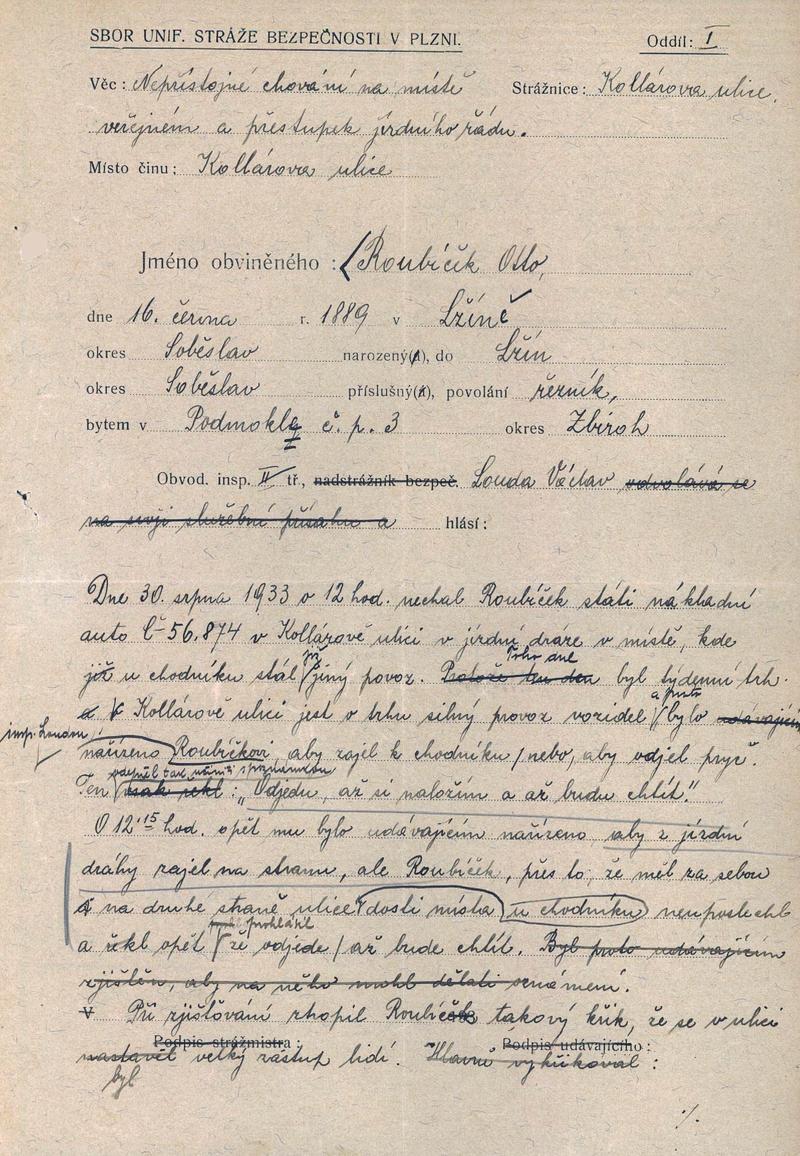 SBOR UNIF. STRÁŽE BEZPEČNOSTI V PLZNI.
Oddíl: I
Věc: Nepřístojné chování na místě
Strážnice: Kollárova ulice.
veřejném a přestupek jízdního řádu.
Místo činu: Kollárova ulice
Jméno obviněného: Roubíček Otto,
dne 16. června r. 1889 v Lžíně
okres Soběslav narozený(á), do Lžín
okres Soběslav příslušný(á), povolání řezník,
bytem v Podmokly č. p. 3 okres Zbiroh
Obvod. insp. II tř., nadstrážník bezpeč. Louda Václav odvolává se
na svoji služební přísahu a hlásí:
Dne 30. srpna 1933 o 12 hod. nechal Roubíček státi nákladní
auto Č-56.874 v Kollárově ulici v jízdní dráze v místě, kde
již u chodníku stál jiný povoz. Protože ten den Toho dne byl týdenní trh.
a V Kollárově ulici jest o trhu silný provoz vozidel a proto bylo udávajícím
insp. Loudou
nařízeno Roubíčkovi, aby zajel k chodníku / nebo, aby odjel pryč.
Ten však řekl: "Odjedu, až si naložím a až budu chtít."
O 12.15 hod. opět mu bylo udávajícím nařízeno aby z jízdní
dráhy zajel na stranu, ale Roubíček, přes to, že měl za sebou
i na druhé straně ulice dosti místa u chodníku neuposlechl
a řekl opět prohlásil že odjede / až bude chtít. Byl proto udávajícím
zjištěn, aby na něho mohl dělati oznámení.
V Při zjišťování ztropil Roubíček takový křik, že se v ulici
Podpis strážmistra:
Podpis udávajícího:
nastavil velký zástup lidí. Hlavně vykřikoval:
byl
./.